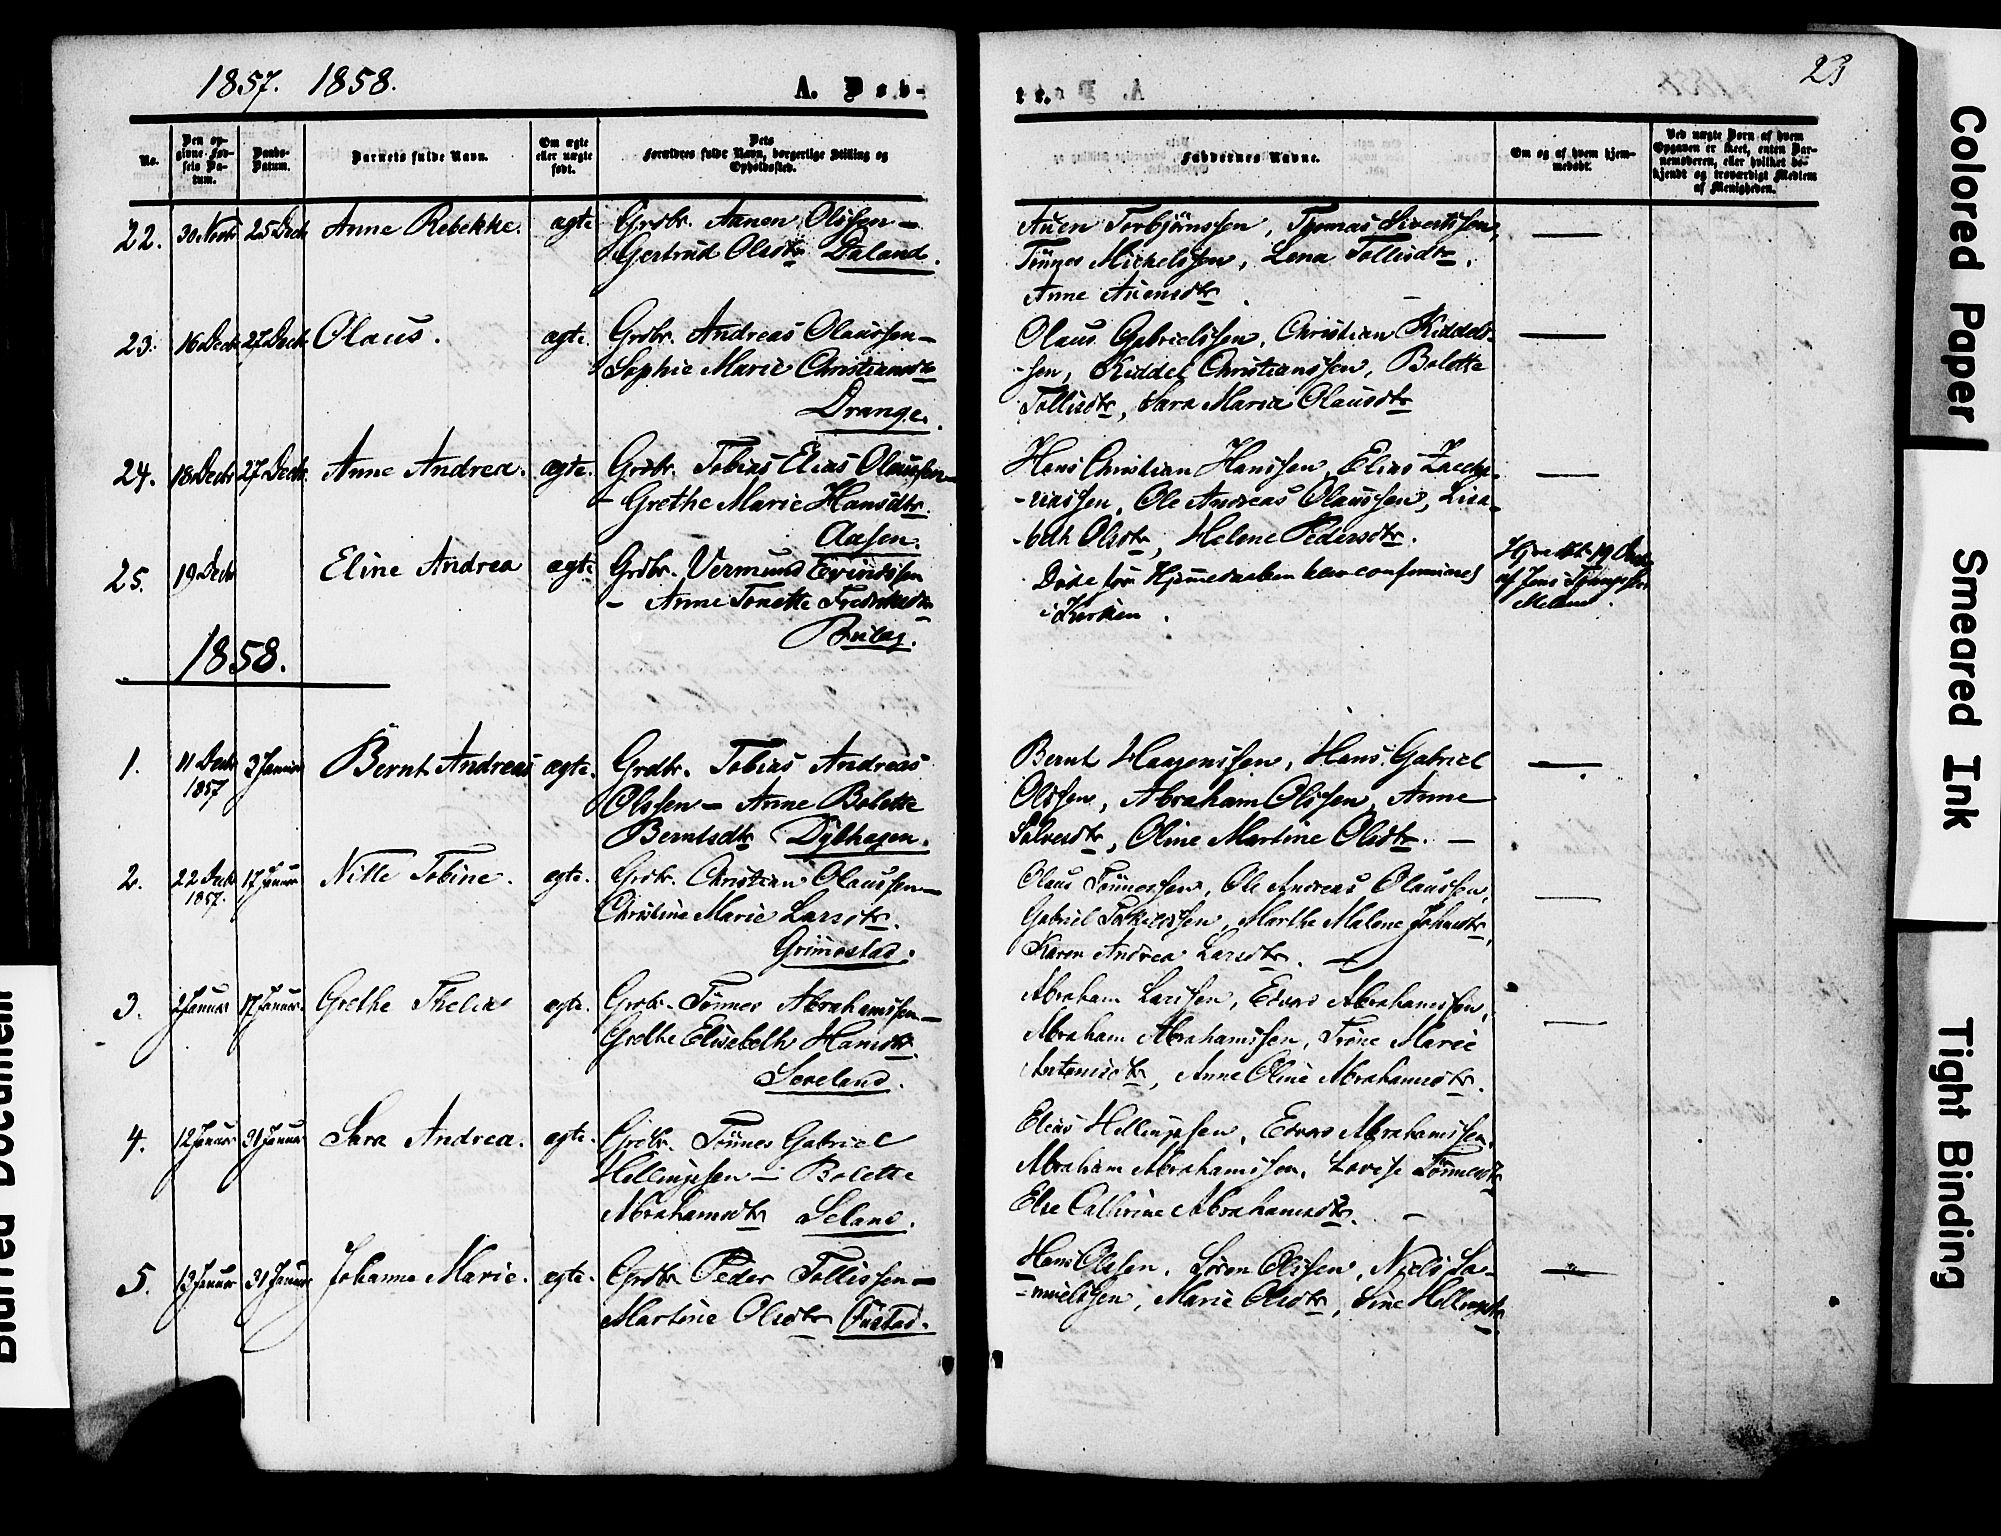 1857. 1858.
A. Døb-
te.
23
No.
Den op-
givne Fød-
sels Da-
tum.
Daabs-
Datum.
Barnets fulde Navn.
Om ægte
eller uægte
født.
Dets
Forældres fulde Navn, borgerlige Stilling og
Opholdssted.
Faddernes Navne.
Om og af hvem hjem-
medøbt.
Ved uægte Børn af hvem
Opgaven er skeet, enten Bar-
nemoderen, eller hvilket be-
kjendt og troværdigt Medlem
af Menigheden.
22. 30 Novbr 25 Decbr Anne Rebekke. ægte Grdbr. Aanen Olssen –
Gertrud Olsdtr Daland.
Auen Torbjørnssen, Thomas Sivertssen,
Tönnes Michelssen, Lena Tollisdtr,
Anne Auensdtr.
23. 16 Decbr 27 Decbr Olaus. ægte. Grdbr. Andreas Olaussen –
Sophie Marie Christiansdtr
Drange.
Olaus Gabrielssen, Christian Kiddels-
-sen, Kiddel Christianssen, Bolette
Tollisdtr, Sara Maria Olausdtr
24. 18 Decbr 27 Decbr. Anne Andrea. ægte. Grdbr. Tobias Elias Olaussen –
– Grethe Marie Hansdtr.
Aasen.
Hans Christian Hanssen, Elias Zacha-
-riassen, Ole Andreas Olaussen, Lisa-
-beth Olsdtr, Helene Pedersdtr.
25. 19 Decbr Eline Andrea ægte Grdbr. Vermund Evindssen
– Anne Tonette Fredriksdtr
Briseg.
Døde før Hjemmedaaben blev confirmeret
i Kirken.
Hjmdbt. 19 Decbr
af Jens
1858.
1. 11 Decbr
1857 3 Januar Bernt Andreas ægte. Grdbr. Tobias Andreas
Olssen – Anne Bolette
Berntsdtr Dybhagen.
Bernt Haagenssen, Hans Gabriel
Olssen, Abraham Olssen, Anne
Salvesdtr, Oline Martine Olsdtr. –
2. 22 Decbr
1857. 17 Januar Nille Tobine. ægte. Grdbr. Christian Olaussen –
Christine Marie Larsdtr.
Grimestad.
Olaus Tönnessen, Ole Andreas Olaussen,
Gabriel Torkelssen, Marthe Malene Johansdtr,
Karen Andrea Larsdtr. –
3. 2 Januar 17 Januar. Grethe Thelia ægte. Grdbr. Tönnes Abrahamssen –
Grethe Elisabeth Hansdtr.
Loveland.
Abraham Larssen, Edvard Abrahamssen,
Abraham Abrahamssen, Trine Marie
Antonisdtr, Anne Oline Abrahamsdtr.
4. 12 Januar 31 Januar Sara Andrea. ægte. Grdbr. Tönnes Gabriel
Hellingssen – Bolette
Abrahamsdtr Seland.
Elias Hellingssen, Edvard Abrahamssen,
Abraham Abrahamssen, Lovise Tönnesdtr
Else Cathrine Abrahamsdtr. –
5. 13 Januar 31 Januar Johanne Marie. ægte. Grdbr Peder Tollissen –
Martine Olsdtr Östad.
Hans Olssen, Sören Olssen, Niels Sa-
-muelssen, Marie Olsdtr, Sine Hellingsdtr
Colored Paper
Smeared Ink
Tight Binding
Blurred Document